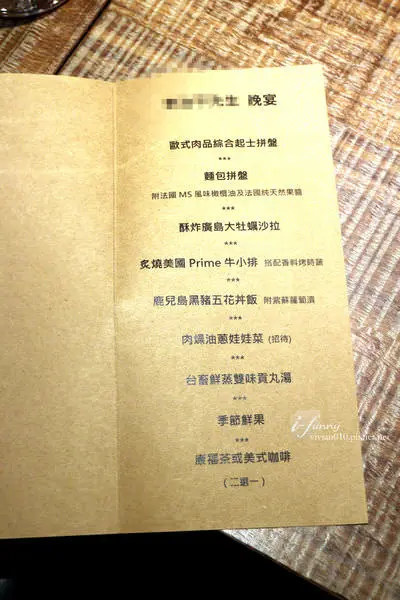 先生 晚宴
歐式肉品綜合起士拼盤
***
麵包拼盤
附法國 MS 風味橄欖油及法國純天然果醬
***
酥炸廣島大牡蠣沙拉
***
炙燒美國 Prime 牛小排 搭配香料烤時蔬
***
鹿兒島黑豬五花丼飯 附紫蘇蘿蔔漬
***
肉燥油蔥娃娃菜 (招待)
***
台畜鮮蒸雙味貢丸湯
***
季節鮮果
***
康福茶或美式咖啡
(二選一)
i-funny
vivian010.pixnet.net